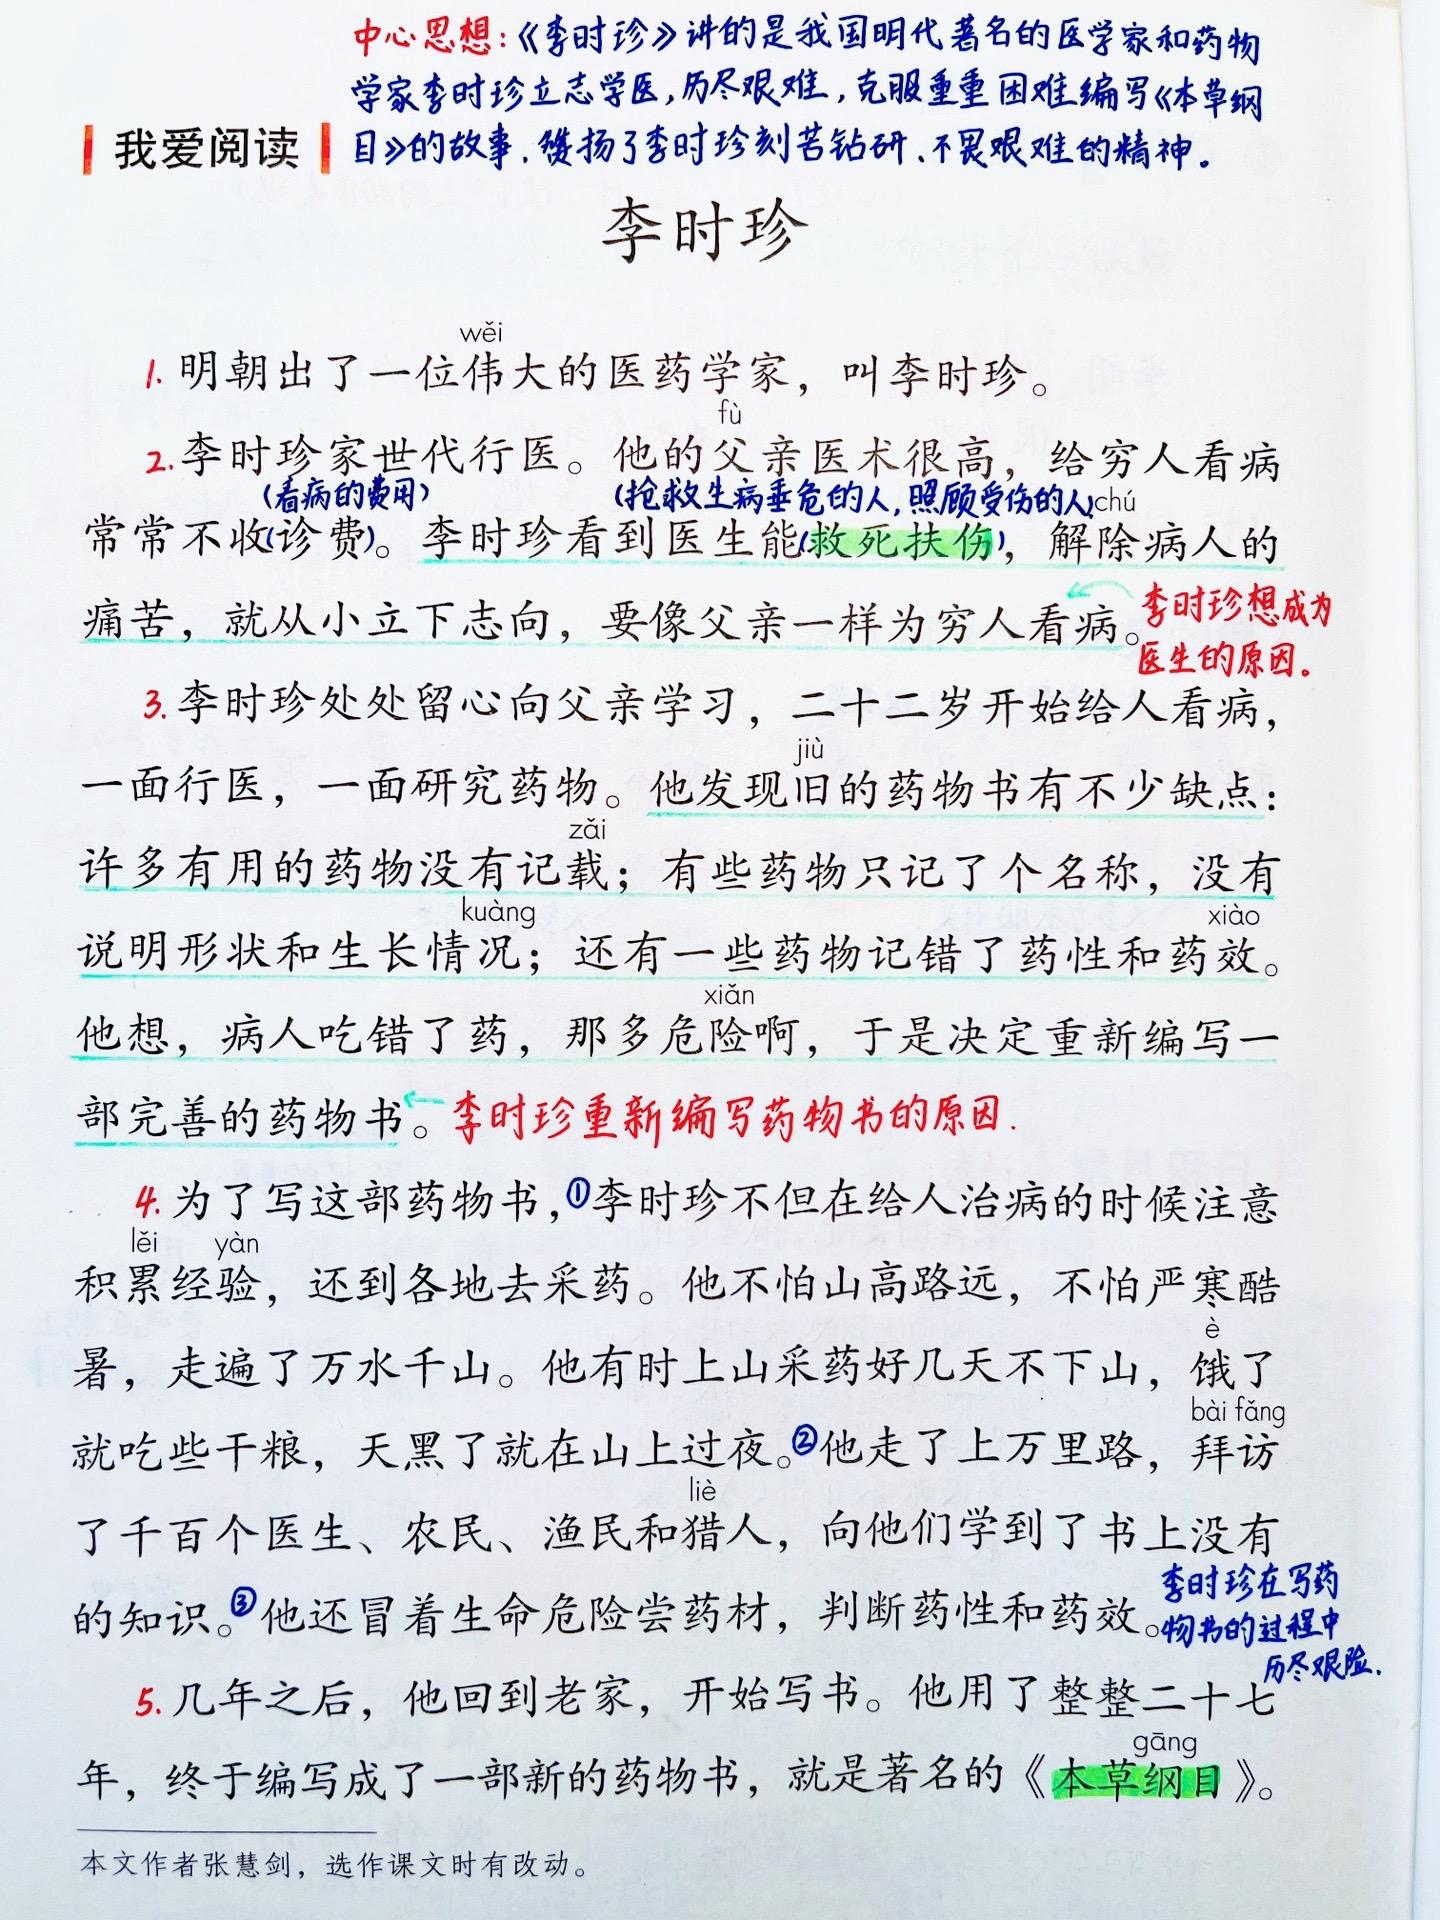 中心思想：《李时珍》讲的是我国明代著名的医学家和药物
学家李时珍立志学医，历尽艰难，克服重重困难编写《本草纲
目》的故事．赞扬了李时珍刻苦钻研、不畏艰难的精神．
我爱阅读
李时珍
wěi
1. 明朝出了一位伟大的医药学家，叫李时珍。
fù
2. 李时珍家世代行医。他的父亲医术很高，给穷人看病
(看病的费用) (抢救生病垂危的人，照顾受伤的人) chú
常常不收(诊费)。李时珍看到医生能(救死扶伤)，解除病人的
痛苦，就从小立下志向，要像父亲一样为穷人看病。
李时珍想成为
医生的原因。
3. 李时珍处处留心向父亲学习，二十二岁开始给人看病，
jiù
一面行医，一面研究药物。他发现旧的药物书有不少缺点：
zǎi
许多有用的药物没有记载；有些药物只记了个名称，没有
kuàng xiào
说明形状和生长情况；还有一些药物记错了药性和药效。
xiǎn
他想，病人吃错了药，那多危险啊，于是决定重新编写一
部完善的药物书。李时珍重新编写药物书的原因．
4. 为了写这部药物书，①李时珍不但在给人治病的时候注意
lěi yàn
积累经验，还到各地去采药。他不怕山高路远，不怕严寒酷
è
暑，走遍了万水千山。他有时上山采药好几天不下山，饿了
bài fǎng
就吃些干粮，天黑了就在山上过夜。②他走了上万里路，拜访
liè
了千百个医生、农民、渔民和猎人，向他们学到了书上没有
的知识。③他还冒着生命危险尝药材，判断药性和药效。
李时珍在写药
物书的过程中
历尽艰险．
5. 几年之后，他回到老家，开始写书。他用了整整二十七
gāng
年，终于编写成了一部新的药物书，就是著名的《本草纲目》。
本文作者张慧剑，选作课文时有改动。